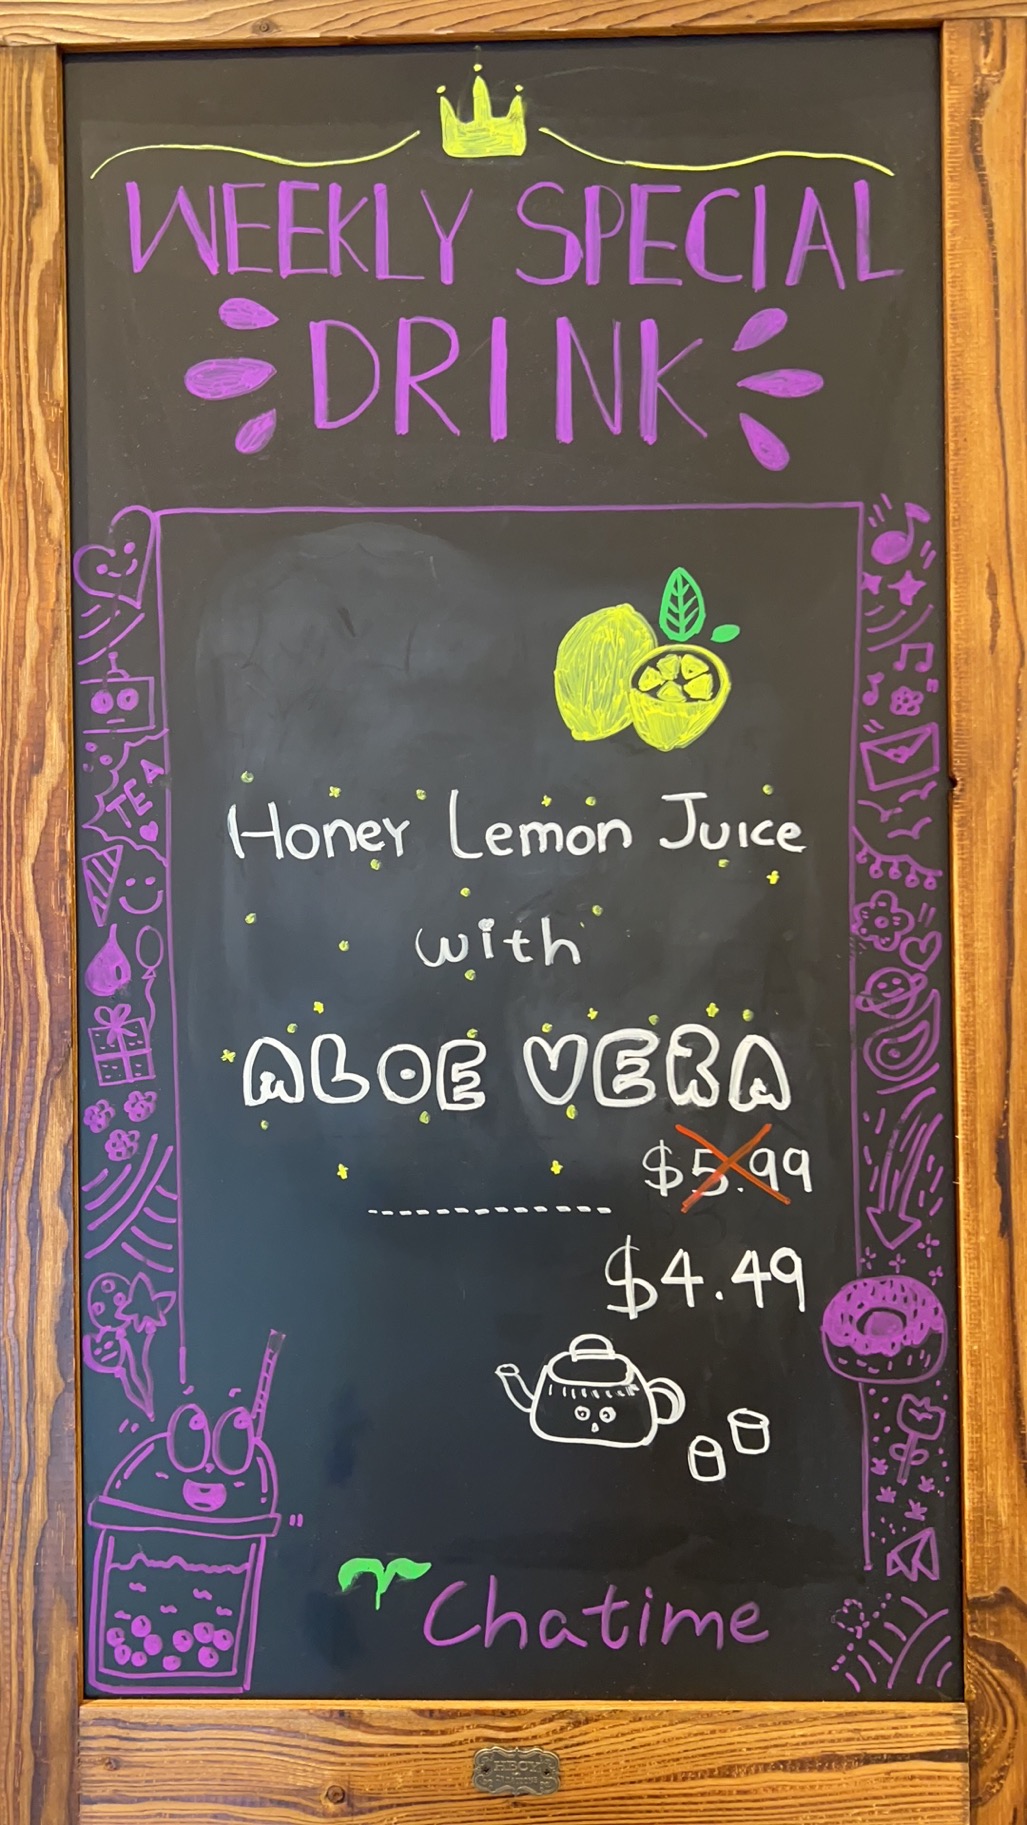 WEEKLY SPECIAL
DRINK
TEA
Honey Lemon Juice
with
ALOE VERA
$5.99
$4.49
Chatime